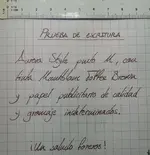 PRUEBA DE ESCRITURA
Aurora Style punto M, con
tinta Montblanc Toffee Brown
y papel publicitario de calidad
y gramaje indeterminados.
¡Un saludo foreros!